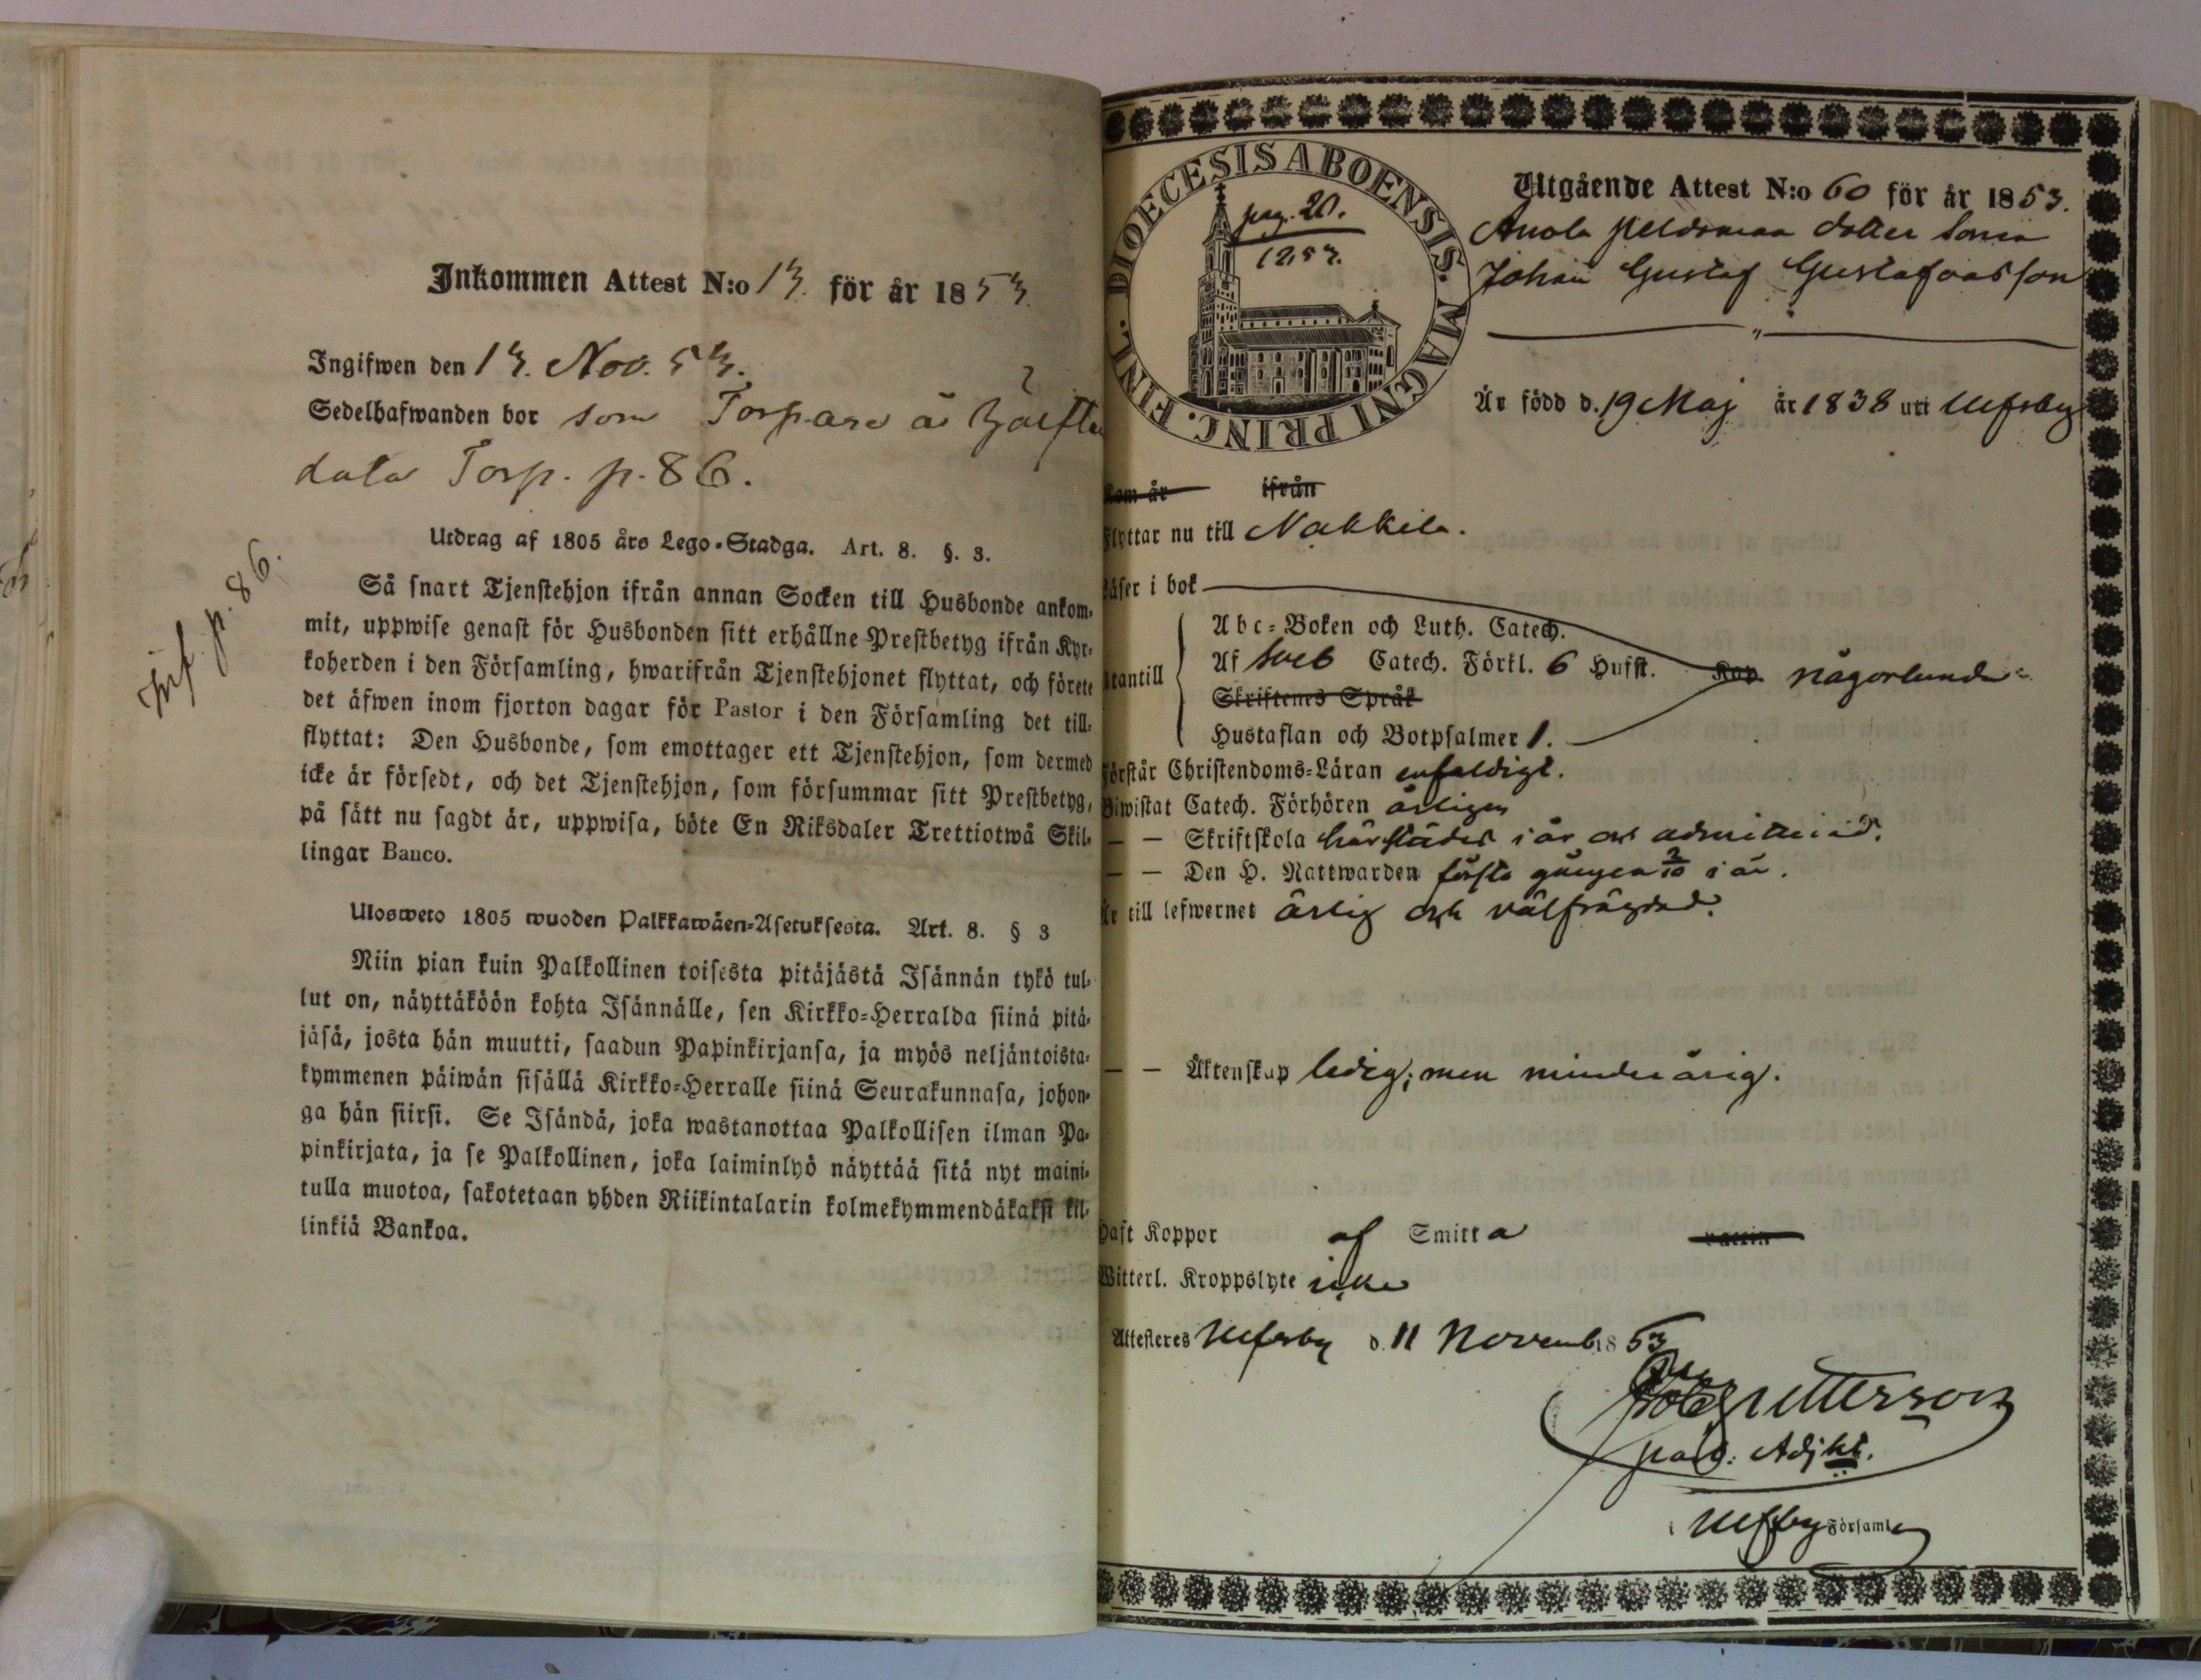 Inkommen Attest N:o 13. för år 1853.
Ingifwen den 13. Nov. 53.
Sedelhafwanden bor som Torpare å
Torp. p. 86.
p. 86.
Utdrag af 1805 års Lego-Stadga. Art. 8. §. 3.
Så snart Tjenstehjon ifrån annan Socken till Husbonde ankom-
mit, uppwise genast för Husbonden sitt erhållne Prestbetyg ifrån Kyr-
koherden i den Församling, hwarifrån Tjenstehjonet flyttat, och förete
det äfwen inom fjorton dagar för Pastor i den Församling det till-
flyttat: Den Husbonde, som emottager ett Tjenstehjon, som dermed
icke är försedt, och det Tjenstehjon, som försummar sitt Prestbetyg,
på sätt nu sagdt är, uppwisa, böte En Riksdaler Trettiotwå Skil-
lingar Banco.
Ulosweto 1805 wuoden Palkkawäen-Asetuksesta. Art. 8. § 3
Niin pian kuin Palkollinen toisesta pitäjästä Isännän tykö tul-
lut on, näyttäköön kohta Isännälle, sen Kirkko-Herralda siinä pitä-
jäsä, josta hän muutti, saadun Papinkirjansa, ja myös neljäntoista-
kymmenen päiwän sisällä Kirkko-Herralle siinä Seurakunnasa, johon-
ga hän siirsi. Se Isändä, joka wastanottaa Palkollisen ilman Pa-
pinkirjata, ja se Palkollinen, joka laiminlyö näyttää sitä nyt maini-
tulla muotoa, sakotetaan yhden Riikintalarin kolmekymmendäkaksi kil-
linkiä Bankoa.
FINL. DIOECESIS ABOENSIS. MAGNI PRINC.
pag. 20.
1853.
Utgående Attest N:o 60 för år 1853.
dotter Sonen
Johan Gustaf Gustafsson
Är född d. 19 Maj år 1838 uti Ulfsby
Kom år ifrån
Flyttar nu till Nakkila.
Läser i bok
Utantill
Abc-Boken och Luth. Catech.
Af Sveb Catech. Förkl. 6 Hufst. någorlunda
Skriftenes Språk
Hustaflan och Botpsalmer 1.
Förstår Christendoms-Läran enfaldigt.
Biwistat Catech. Förhören årligen
— — Skriftskola härstädes i år och admitterad.
— — Den H. Nattwarden första gången 2/10 i år.
Är till lefwernet ärlig och välfrägdad.
— — Äktenskap ledig; men minderårig.
Haft Koppor af Smitta
Witterl. Kroppslyte icke
Attesteras Ulfsby d. 11 Novemb. 1853
past. Adjkt.
i Ulfsby Församl.